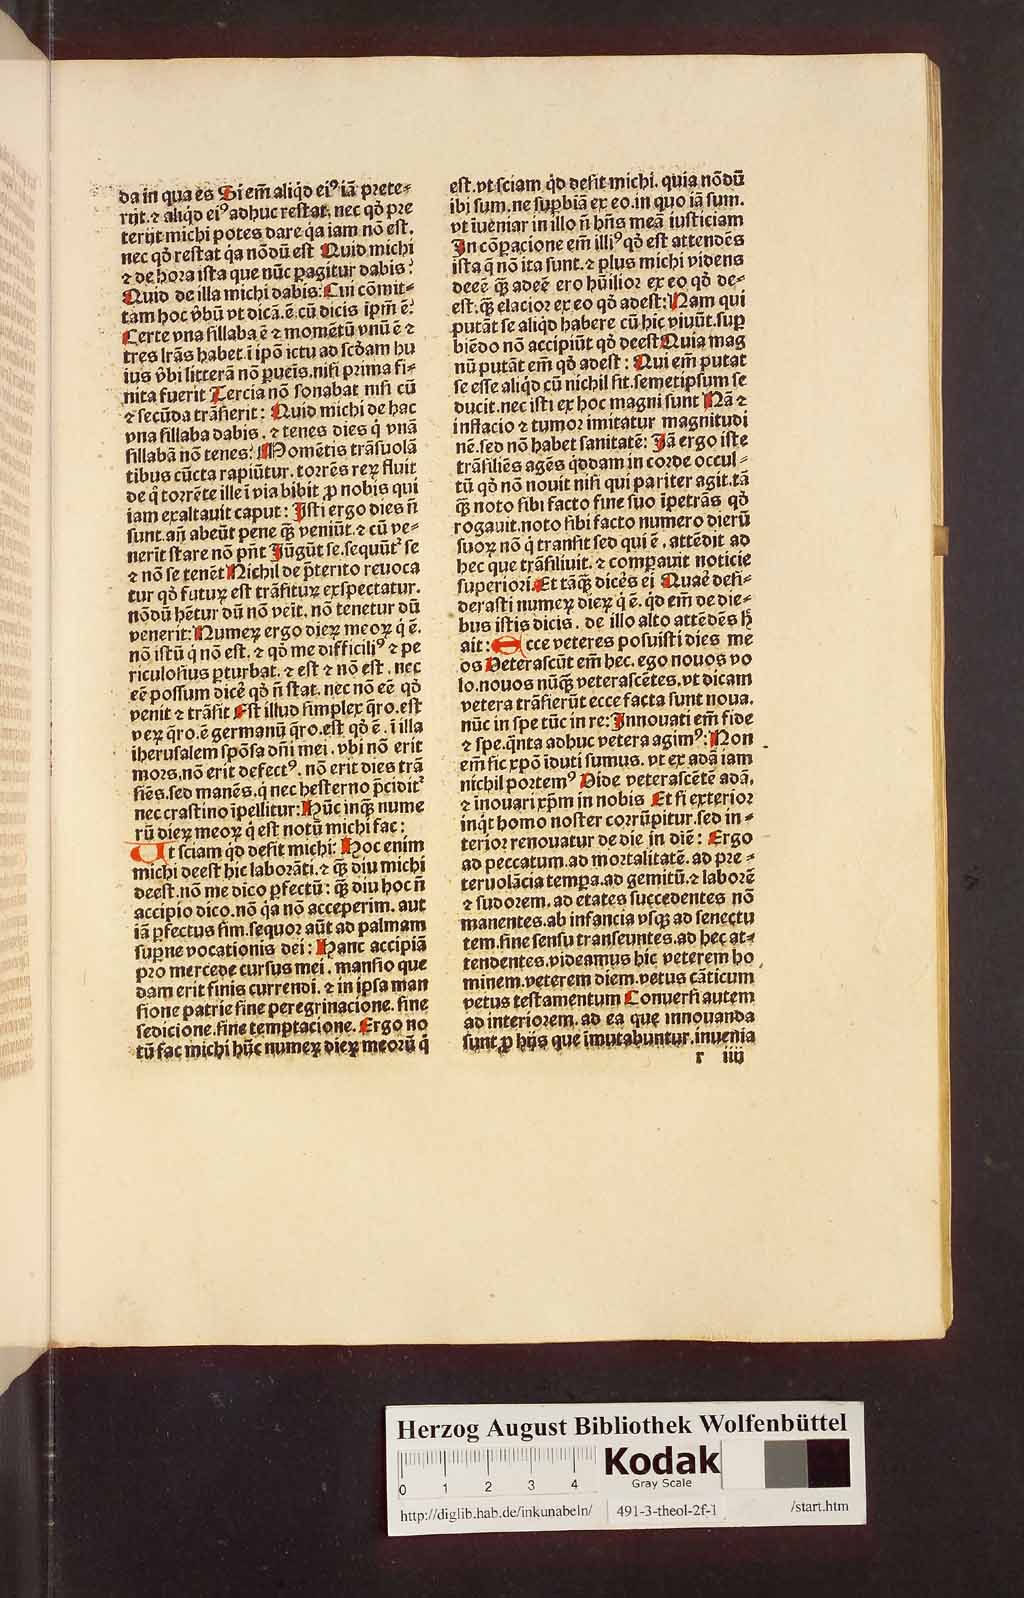 da in qua es Si em̄ aliqd̓ ei⁹ iā prete⸗
rijt.⁊ aliqd̓ ei⁹ adhuc restat. nec qd̓ pre
terijt michi potes dare q̓a iam nō est.
nec qd̓ restat q̓a nōdū est Quid michi
⁊ de hora ista que nūc ꝑagitur dabis?
Quid de illa michi dabis: Cui cōmit⸗
tam hoc v̓bū vt dicā.ē. cū dicis ip̄m ē?
Certe vna sillaba ē ⁊ momētū vnū ē ⁊
tres lr̄as habet. ī ip̄o ictu ad scd̓am hu
ius v̓bi litterā nō ꝑueīs.nisi prima fi⸗
nita fuerit Tercia nō sonabat nisi cū
⁊ secūda trāsierit: Quid michi de hac
vna sillaba dabis . ⁊ tenes dies q̓ vnā
sillabā nō tenes? Momētis trāsuolā
tibus cūcta rapiūtur. torrēs reꝝ fluit
de q̓ torrēte ille ī via bibit ꝓ nobis qui
iam exaltauit caput : Isti ergo dies n̄
sunt.an̄ abeūt pene qꝫ veniūt.⁊ cū ve⸗
nerīt stare nō pn̄t Iūgūt se.sequūtᷣ se
⁊ nō se tenēt Nichil de p̄terito reuoca
tur qd̓ futuꝝ est trāsituꝝ exspectatur.
nōdū hētur dū nō veīt. nō tenetur dū
venerit: Numeꝝ ergo dieꝝ meoꝝ q̓ ē.
nō istū q̓ nō est. ⁊ qd̓ me difficili⁹ ⁊ pe
riculosius ꝑturbat. ⁊ est ⁊ nō est . nec
eē possum dicē qd̓ n̄ stat. nec nō eē qd̓
venit ⁊ trāsit Est illud simplex q̄ro.est
veꝝ q̄ro.ē germanū q̄ro.est qd̓ ē . ī illa
iherusalem spōsa dn̄i mei . vbi nō erit
mors.nō erit defect⁹. nō erit dies trā
siēs.sed manēs.q̓ nec hesterno p̄ciditᷣ
nec crastino īpellitur: Hūc inqꝫ nume
rū dieꝝ meoꝝ q̓ est notū michi fac:
Ut sciam qd̓ desit michi: Hoc enim
michi deest hic laborāti.⁊ qꝫ diu michi
deest.nō me dico ꝑfectū: qꝫ diu hoc n̄
accipio dico.nō q̓a nō acceperim. aut
iā ꝑfectus sim.sequor aūt ad palmam
suꝑne vocationis dei : Hanc accipiā
pro mercede cursus mei . mansio que
dam erit finis currendi. ⁊ in ipsa man
sione patrie sine peregrinacione. sine
sedicione.sine temptacione. Ergo no
tū fac michi hūc numeꝝ dieꝝ meorū q̓
est.vt sciam qd̓ desit michi. quia nōdū
ibi sum.ne suꝑbiā ex eo.in quo iā sum.
vt iueniar in illo n̄ hn̄s meā iusticiam
In cōꝑacione em̄ illi⁹ qd̓ est attendēs
ista q̓ nō ita sunt.⁊ plus michi videns
deeē qꝫ adeē ero hūilior ex eo qd̓ de⸗
est.qꝫ elacior ex eo qd̓ adest: Nam qui
putāt se aliqd̓ habere cū hic viuūt.suꝑ
biēdo nō accipiūt qd̓ deest Quia mag
nū putāt em̄ qd̓ adest : Qui em̄ putat
se esse aliqd̓ cū nichil sit.semetipsum se
ducit.nec isti ex hoc magni sunt Nā ⁊
inflacio ⁊ tumor imitatur magnitudi
nē.sed nō habet sanitatē: Iā ergo iste
trāsiliēs agēs q̓ddam in corde occul⸗
tū qd̓ nō nouit nisi qui pariter agit.tā
qꝫ noto sibi facto fine suo īpetrās qd̓
rogauit.noto sibi facto numero dierū
suoꝝ nō q̓ transit sed qui ē . attēdit ad
hec que trāsiliuit. ⁊ comparauit noticie
superiori. Et tāqꝫ dicēs ei Quaē desi⸗
derasti numeꝝ dieꝝ q̓ ē. qd̓ em̄ de die⸗
bus istis dicis . de illo alto attēdēs ꝗ
ait : Ecce veteres posuisti dies me
os Veterascūt em̄ hec. ego nouos vo
lo.nouos nūqꝫ veterascētes.vt dicam
vetera trāsierūt ecce facta sunt noua.
nūc in spe tūc in re: Innouati em̄ fide
⁊ spe.q̄nta adhuc vetera agim⁹: Non
em̄ sic xp̄o īduti sumus. vt ex adā iam
nichil portem⁹ Vide veterascētē adā.
⁊ īnouari xp̄m in nobis Et si exterior
inq̓t homo noster corrūpitur.sed in⸗
terior renouatur de die in diē : Ergo
ad peccatum.ad mortalitatē. ad pre⸗
teruolācia tempa.ad gemitū.⁊ laborē
⁊ sudorem. ad etates succedentes nō
manentes.ab infancia vsqꝫ ad senectu
tem.sine sensu transeuntes.ad hec at⸗
tendentes.videamus hic veterem ho
minem.veterem diem.vetus cāticum
vetus testamentum Conuersi autem
ad interiorem. ad ea que innouanda
sunt ꝓ hijs que imutabuntur.inuenia
r iiij
Herzog August Bibliothek Wolfenbüttel
0 1 2 3 4
Kodak
Gray Scale
http://diglib.hab.de/inkunabeln/ 491-3-theol-2f-1 /start.htm